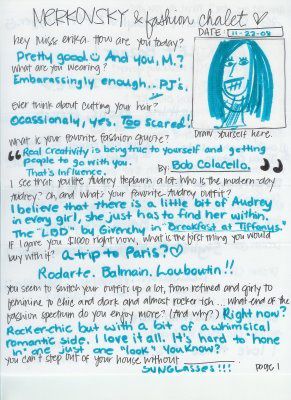 MERKOVSKY & fashion chalet ♡
DATE: 11-22-08
hey Miss Erika. How are you today?
Pretty good ☺ And you, M.?
What are you wearing?
Embarassingly enough.. PJ's.
Ever think about cutting your hair?
Ocassionaly, yes. Too scared!
Draw yourself here.
What is your favorite fashion quote?
"Real Creativity is being true to yourself and getting
people to go with you.
That's Influence. By: Bob Colacello. "
I see that you like Audrey Hepburn a lot. Who is the modern-day
Audrey? Oh, and what's your favorite Audrey outfit?
I believe that there is a little bit of Audrey
in every girl, she just has to find her within.
The "LBD" by Givenchy in "Breakfast at Tiffanys."
If I gave you $1000 right now, what is the first thing you would
buy with it? a trip to Paris?♡
Rodarte. Balmain. Louboutin!!
you seem to switch your outfits up a lot, from refined and girly to
feminine to chic and dark and almost rocker-ish... what end of the
fashion spectrum do you enjoy more? (And why?) Right now?
Rocker-chic but with a bit of a whimsical
romantic side. I love it all. It's hard to "hone
in" one just one "look" you know?
you can't step out of your house without
SUNGLASSES!!!
page 1